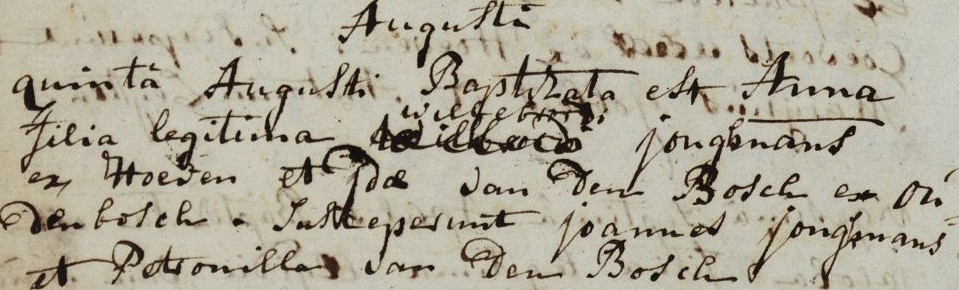 Augusti
quinta Augusti Baptizata est Anna
filia legitima wilbordi jongmans
ex Hoeven et jdæ van Den Bosch ex Ou-
Denbosch. Susceperunt joannes jongmans
et Petronilla van Den Bosch